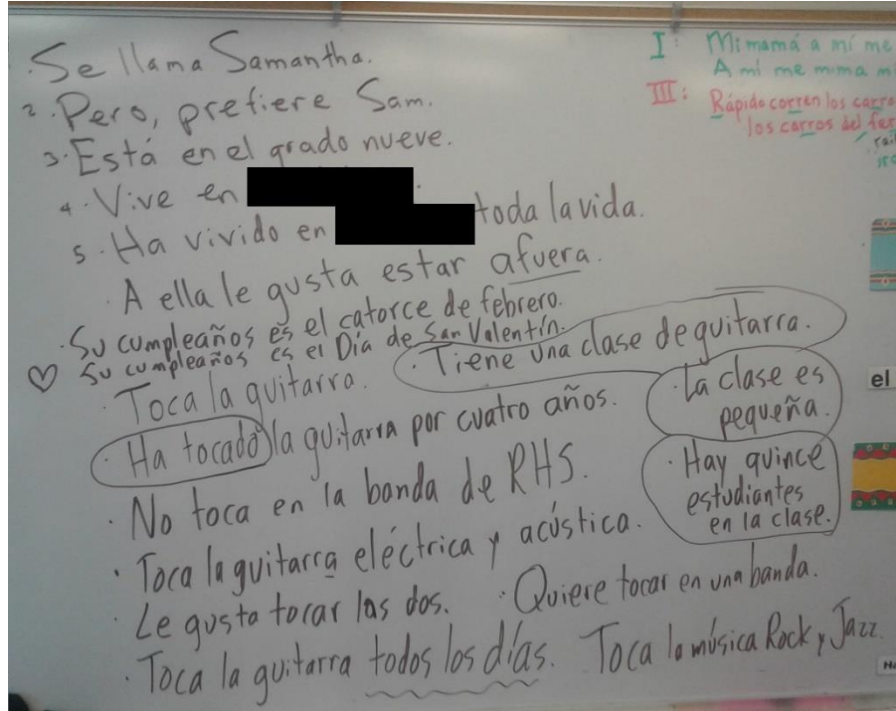 · Se llama Samantha.
2. Pero, prefiere Sam.
3. Está en el grado nueve.
4. Vive en
5. Ha vivido en toda la vida.
A ella le gusta estar afuera.
· Su cumpleaños es el catorce de febrero.
♡ Su cumpleaños es el Día de San Valentín.
· Tiene una clase de guitarra.
· Toca la guitarra.
· La clase es
pequeña.
· Ha tocado la guitarra por cuatro años.
· Hay quince
estudiantes
en la clase.
· No toca en la banda de RHS.
· Toca la guitarra eléctrica y acústica.
· Le gusta tocar las dos.
· Quiere tocar en una banda.
· Toca la guitarra todos los días. Toca la música Rock y Jazz.
I: Mi mamá a mí me
A mí me mima mi
III: Rápido corren los carros
los carros del fer
el